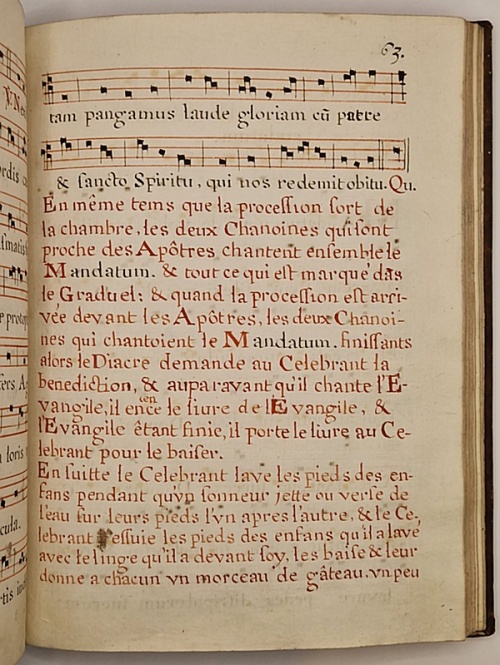 63.
tam pangamus laude gloriam cũ patre
& sancto Spiritu, qui nos redemit obitu. Qu.
En même tems que la procession sort de
la chambre, les deux Chanoines qui sont
proche des Apôtres chantent ensemble le
Mandatum. & tout ce qui est marqué dãs
le Graduel: & quand la procession est arri-
vée devant les Apôtres, les deux Chanoi-
nes qui chantoient le Mandatum. finissants
alors le Diacre demande au Celebrant la
benediction, & auparavant qu'il chante l'E-
vangile, il encense le livre de l'Evangile, &
l'Evangile êtant finie, il porte le livre au Ce-
lebrant pour le baiser.
En suitte le Celebrant lave les pieds des en-
fans pendant qu'vn sonneur jette ou verse de
l'eau sur leurs pieds l'vn apres l'autre, & le Ce,
lebrant essuie les pieds des enfans qu'il a lavé
avec le linge qu'il a devant soy, les baise & leur
donne a chacun vn morceau de gâteau, vn peu